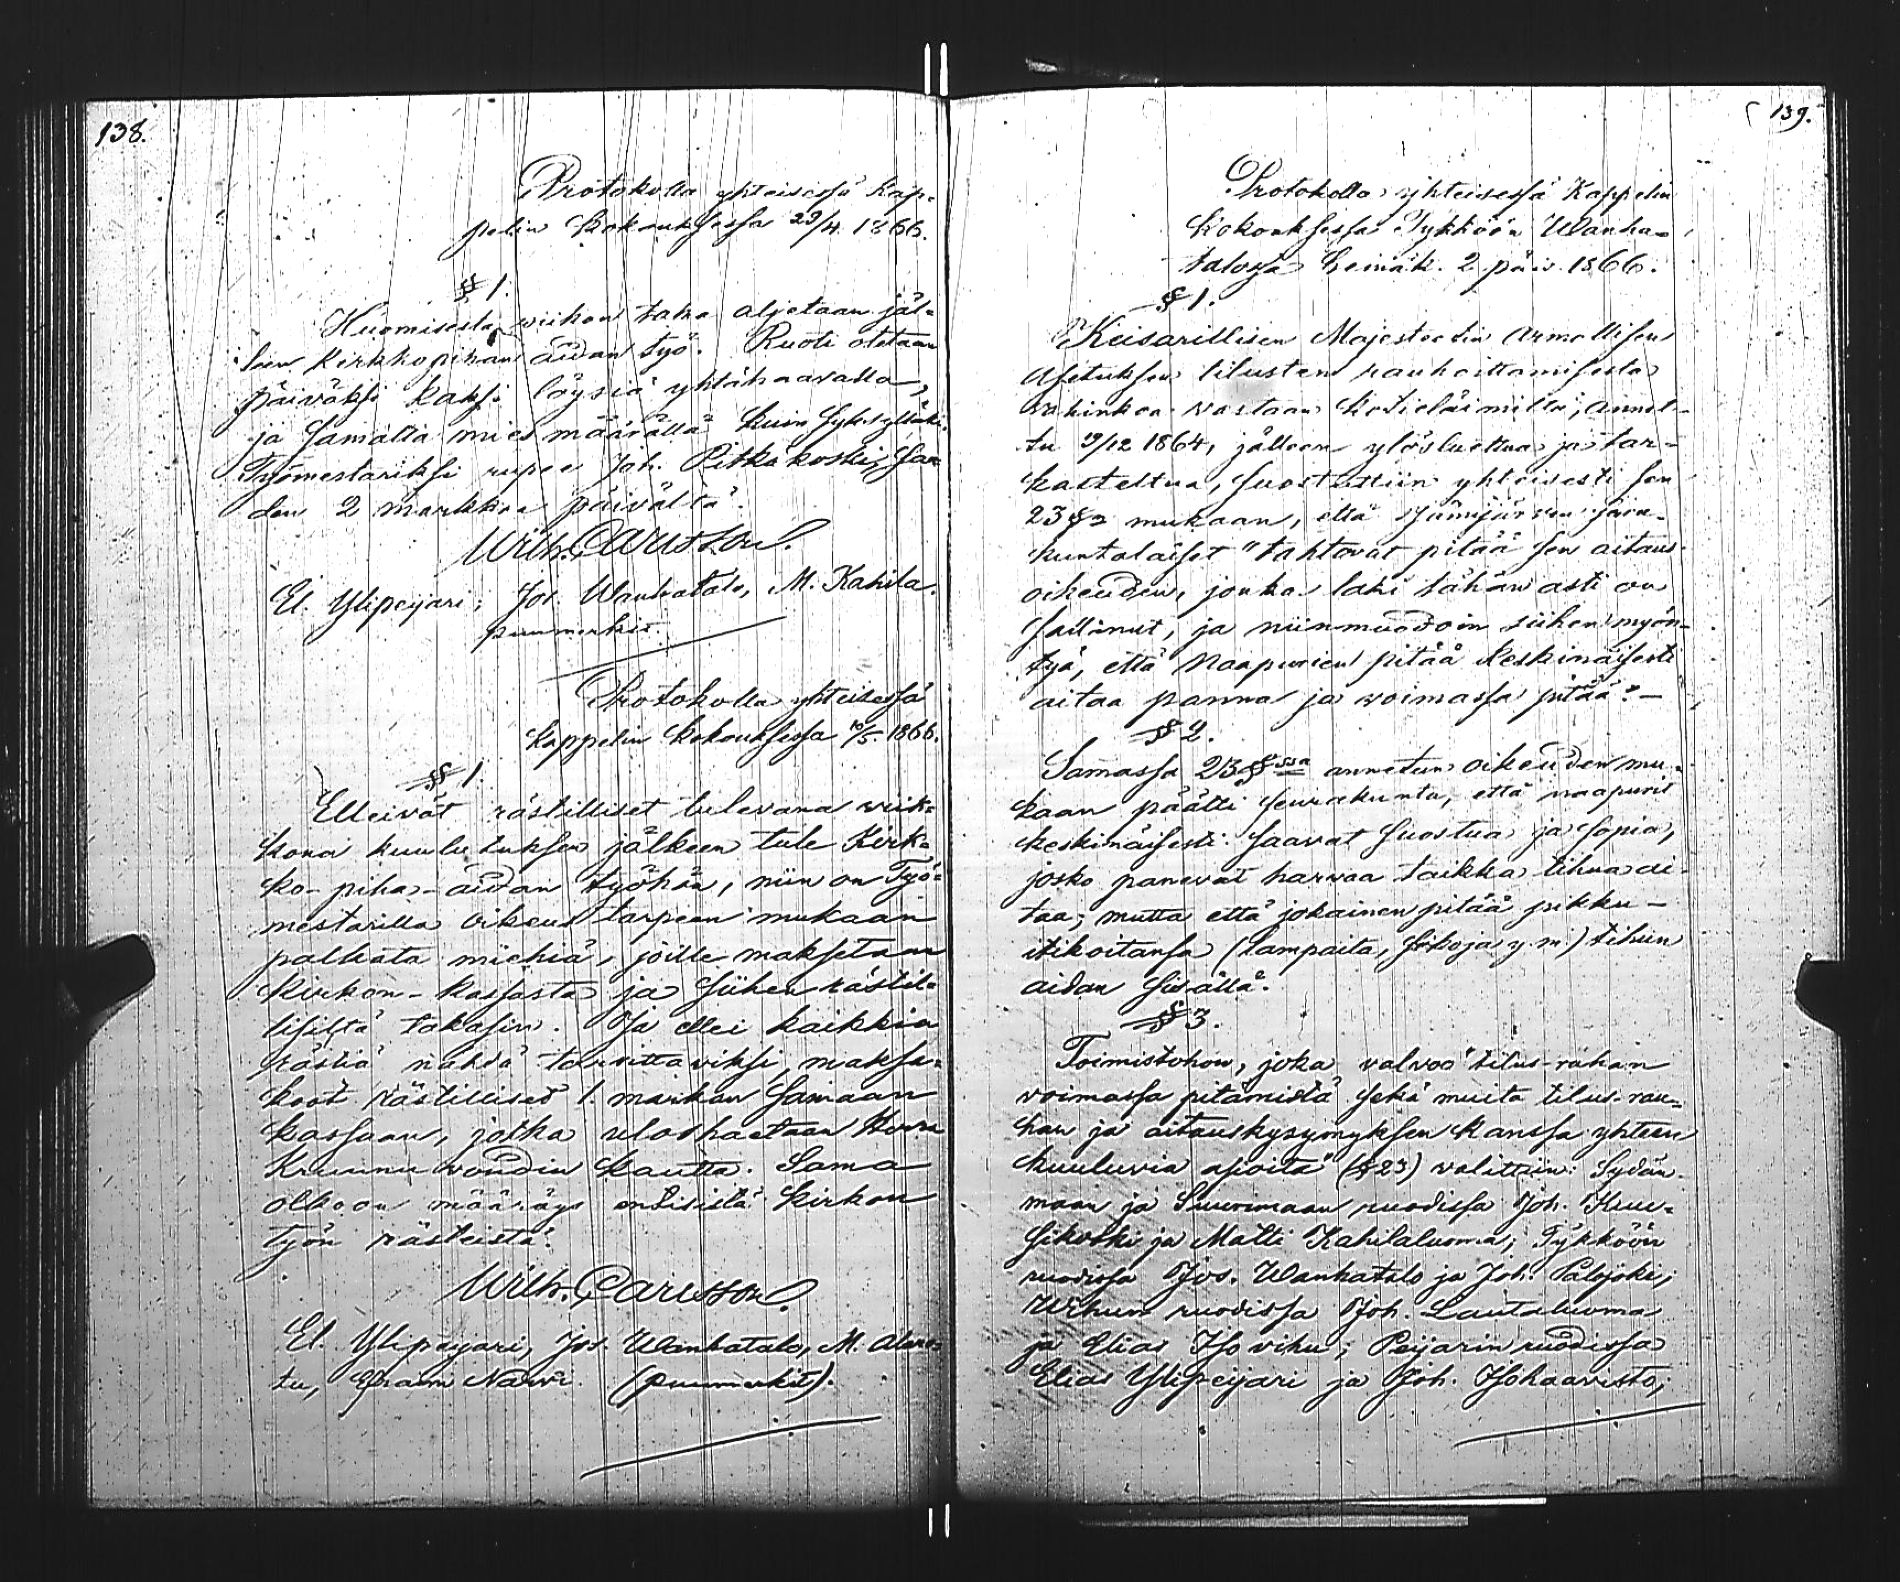 138.
Protokolla yhteisessä Kap-
pelin Kokouksessa 29/4 1866.
§ 1.
Huomisesta wiikon taka aljetaan jäl-
leen kirkkopihan aidan työ. Ruoti otetaan
päiväksi kaksi löysiä yhtähaavalla,
ja samalla mies määrällä kuin syksylläki.
Työmestariksi rupee Joh. Pitkäkoski, saa-
den 2 markkaa päivältä.
Wilh. Carlsson.
El. Ylipeijari, Jos. Wanhatalo, M. Kahila.
puumerkit.
Protokolla yhteisessä
Kappelin Kokouksessa 10/5 1866.
§ 1.
Elleivät rästilliset tulevana wiik-
kona kuulutuksen jälkeen tule Kirk-
ko-piha-aidan työhön, niin on Työ-
mestarilla oikeus tarpeen mukaan
palkata miehiä, joille maksetaan
Kirkon-kassasta ja siihen rästil-
lisiltä takasin. Ja ellei kaikkia
rästiä nähdä tarvittaviksi, maksa-
koot rästilliset 1. markan samaan
kassaan, jotka uloshaetaan Herra
Kruunu woudin kautta. Sama
olkoon määräys entisistä kirkon
työn rästeistä.
Wilh. Carlsson.
El. Ylipeijari, Jos. Wanhatalo, M.
Efraim (puumerkit).
139.
Protokolla yhteisessä Kappelin
Kokouksessa Tykköön Wanha-
talossa Heinäk. 2 päiv. 1866.
§ 1.
Keisarillisen Majesteetin Armollisen
Asetuksen tilusten rauhoittamisesta
vahinkoa vastaan kotieläimiltä, annet-
tu 19/12 1864, jälleen ylösluettua ja tar-
kasteltua, suostuttiin yhteisesti sen
23 §n mukaan, että Jämijärven seura-
kuntalaiset "tahtovat pitää sen aitaus-
oikeuden, jonka laki tähän asti on
säätänut, ja niinmuodoin siihen myön-
tyä, että Naapurien pitää keskinäisesti
aitaa panna ja woimassa pitää". -
§ 2.
Samassa 23 §ssa annetun oikeuden mu-
kaan päätti seurakunta, että naapurit
keskinäisesti saavat suostua ja sopia,
josko panevat harvaa taikka tihua ai-
taa; mutta että jokainen pitää pikku-
itikoitansa (lampaita, sikoja y. m.) tihun
aidan sisällä.
§ 3.
Toimistohon, joka valvoo "tilus-rauhan
voimassa pitämistä sekä muita tilus-rau-
han ja aitauskysymyksen kanssa yhteen
kuuluvia asioita" (§ 23) valittiin: Sydän-
maan ja Suurimaan ruodissa Joh. Kuu-
sikoski ja Matti Kahilaluoma; Tykköön
ruodissa Jos. Wanhatalo ja Joh. Palojoki;
Wihun ruodissa Joh. Lautaluoma
ja Elias Isovihu; Peijarin ruodissa
Elias Ylipeijari ja Joh. Isohaavisto;